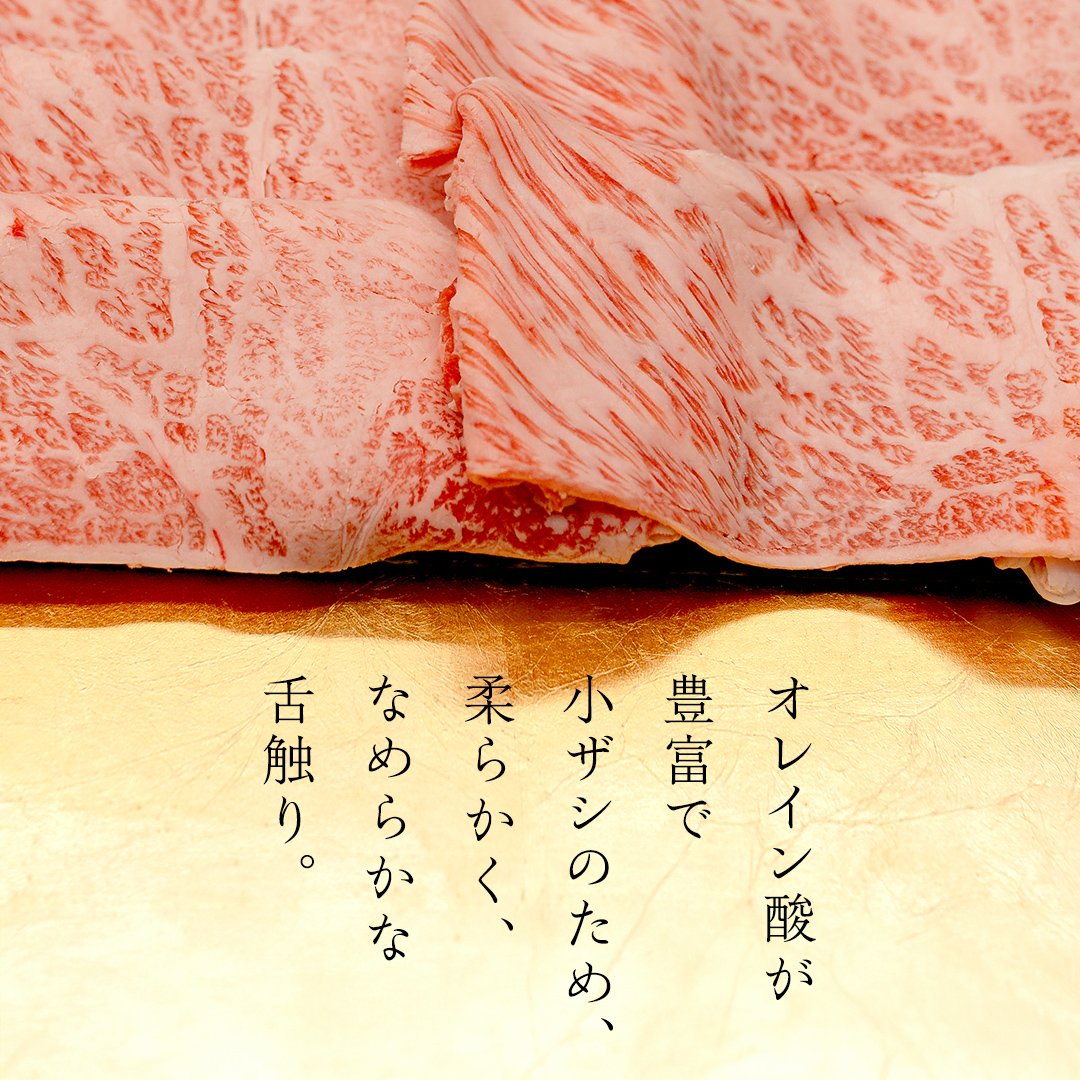 オレイン酸が
豊富で
小ザシのため、
柔らかく、
なめらかな
舌触り。